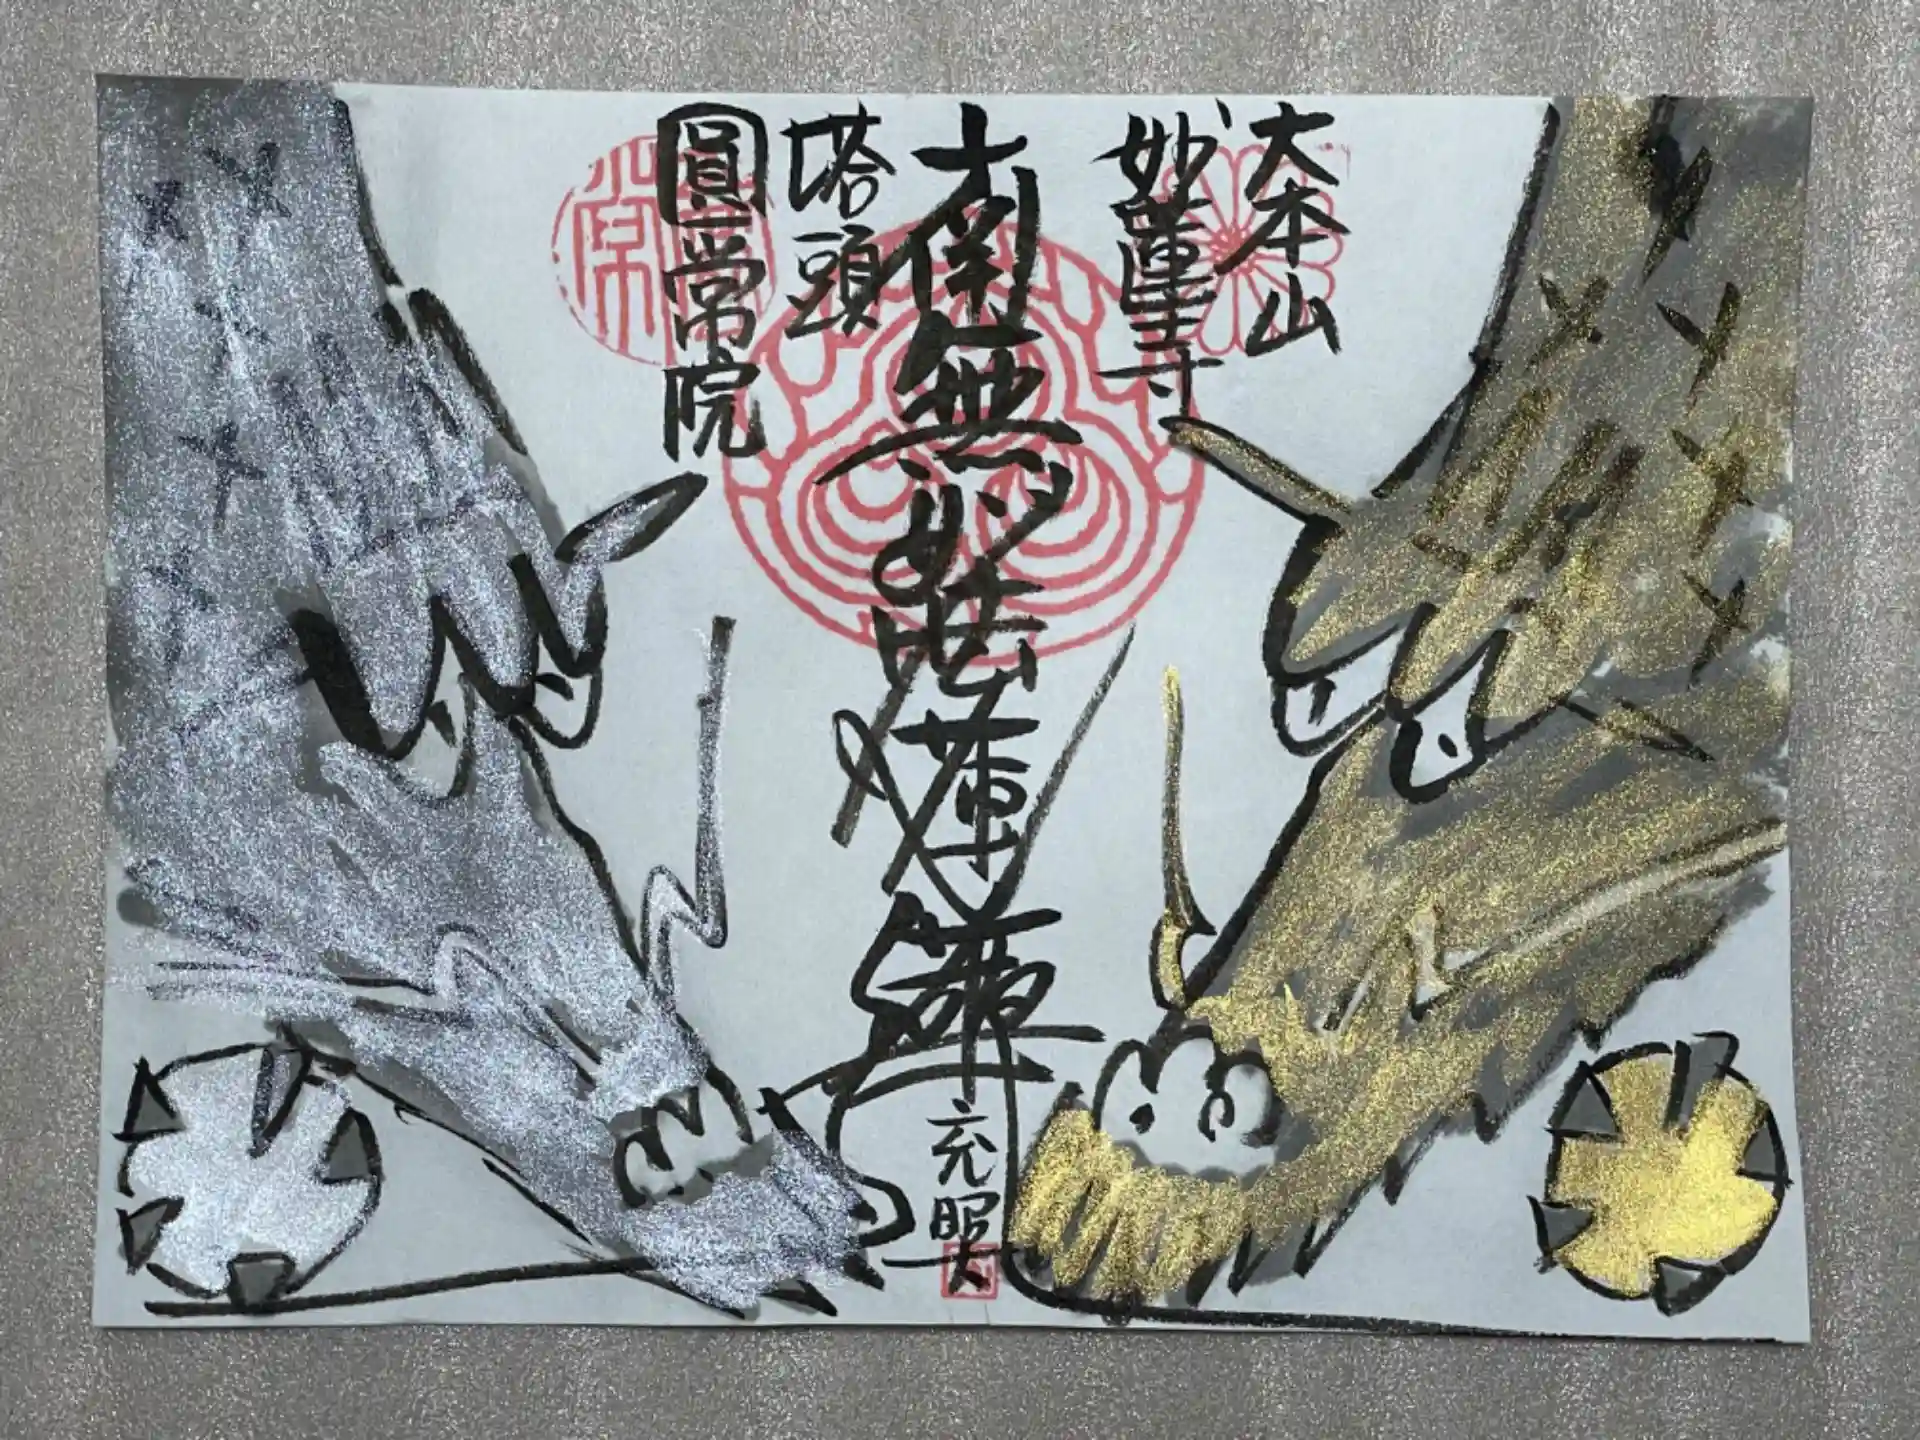 大本山
妙蓮寺
南無妙法蓮華經
充照
塔頭
圓常院